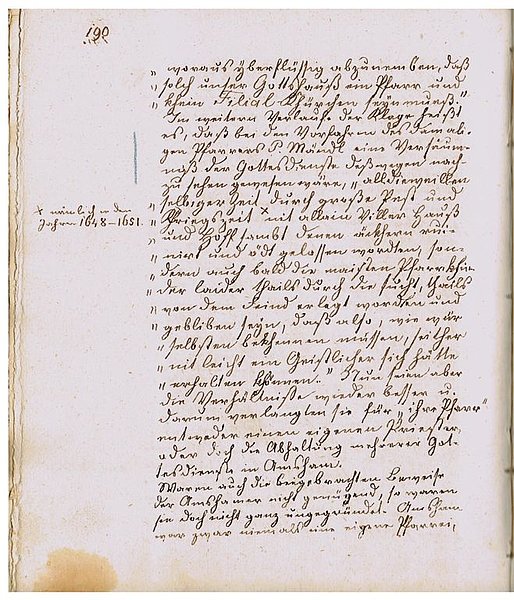 190
„ woraus yberflüssig abzunemben, daß
„ solch unser Gottshauß ein Pfarr und
„ khein Filial Khürchen seyn mueß."
Im weitern Verlaufe der Klage heißt
es, daß bei den Vorfahren des damali-
gen Pfarrers P. Mändl eine Versäum-
niß der Gottesdienste deßwegen nach-
zusehen gewesen wäre, „alldieweillen
„ selbiger Zeit durch große Pest und
„ Kriegszeit x nit allain Viller Hauß
x nämlich in den
Jahren 1648-1651.
„ und Höff sambt denen äckhern rui-
„ nirt und ödt gelassen wordten, son-
„ dern auch bald die maisten Pfarrkhin-
„ der laider thails durch die sucht, thails
„ von dem Feind erlegt worden und
„ gebliben seyn, daß also, wie wür
„ selbsten bekhennen müssen, seither
„ nit leicht ein Geistlicher sich hätte
„ erhalten können." Nun seien aber
die Verhältnisse wieder besser u.
darum verlangten sie für „ihre Pfarr"
entweder einen eigenen Priester,
oder doch die Abhaltung mehrerer Got-
tesdienste in Amsham.
Waren auch die beigebrachten Beweise
der Amshamer nicht genügend, so waren
sie doch nicht ganz ungegründet. Amsham
war zwar niemals eine eigene Pfarrei,